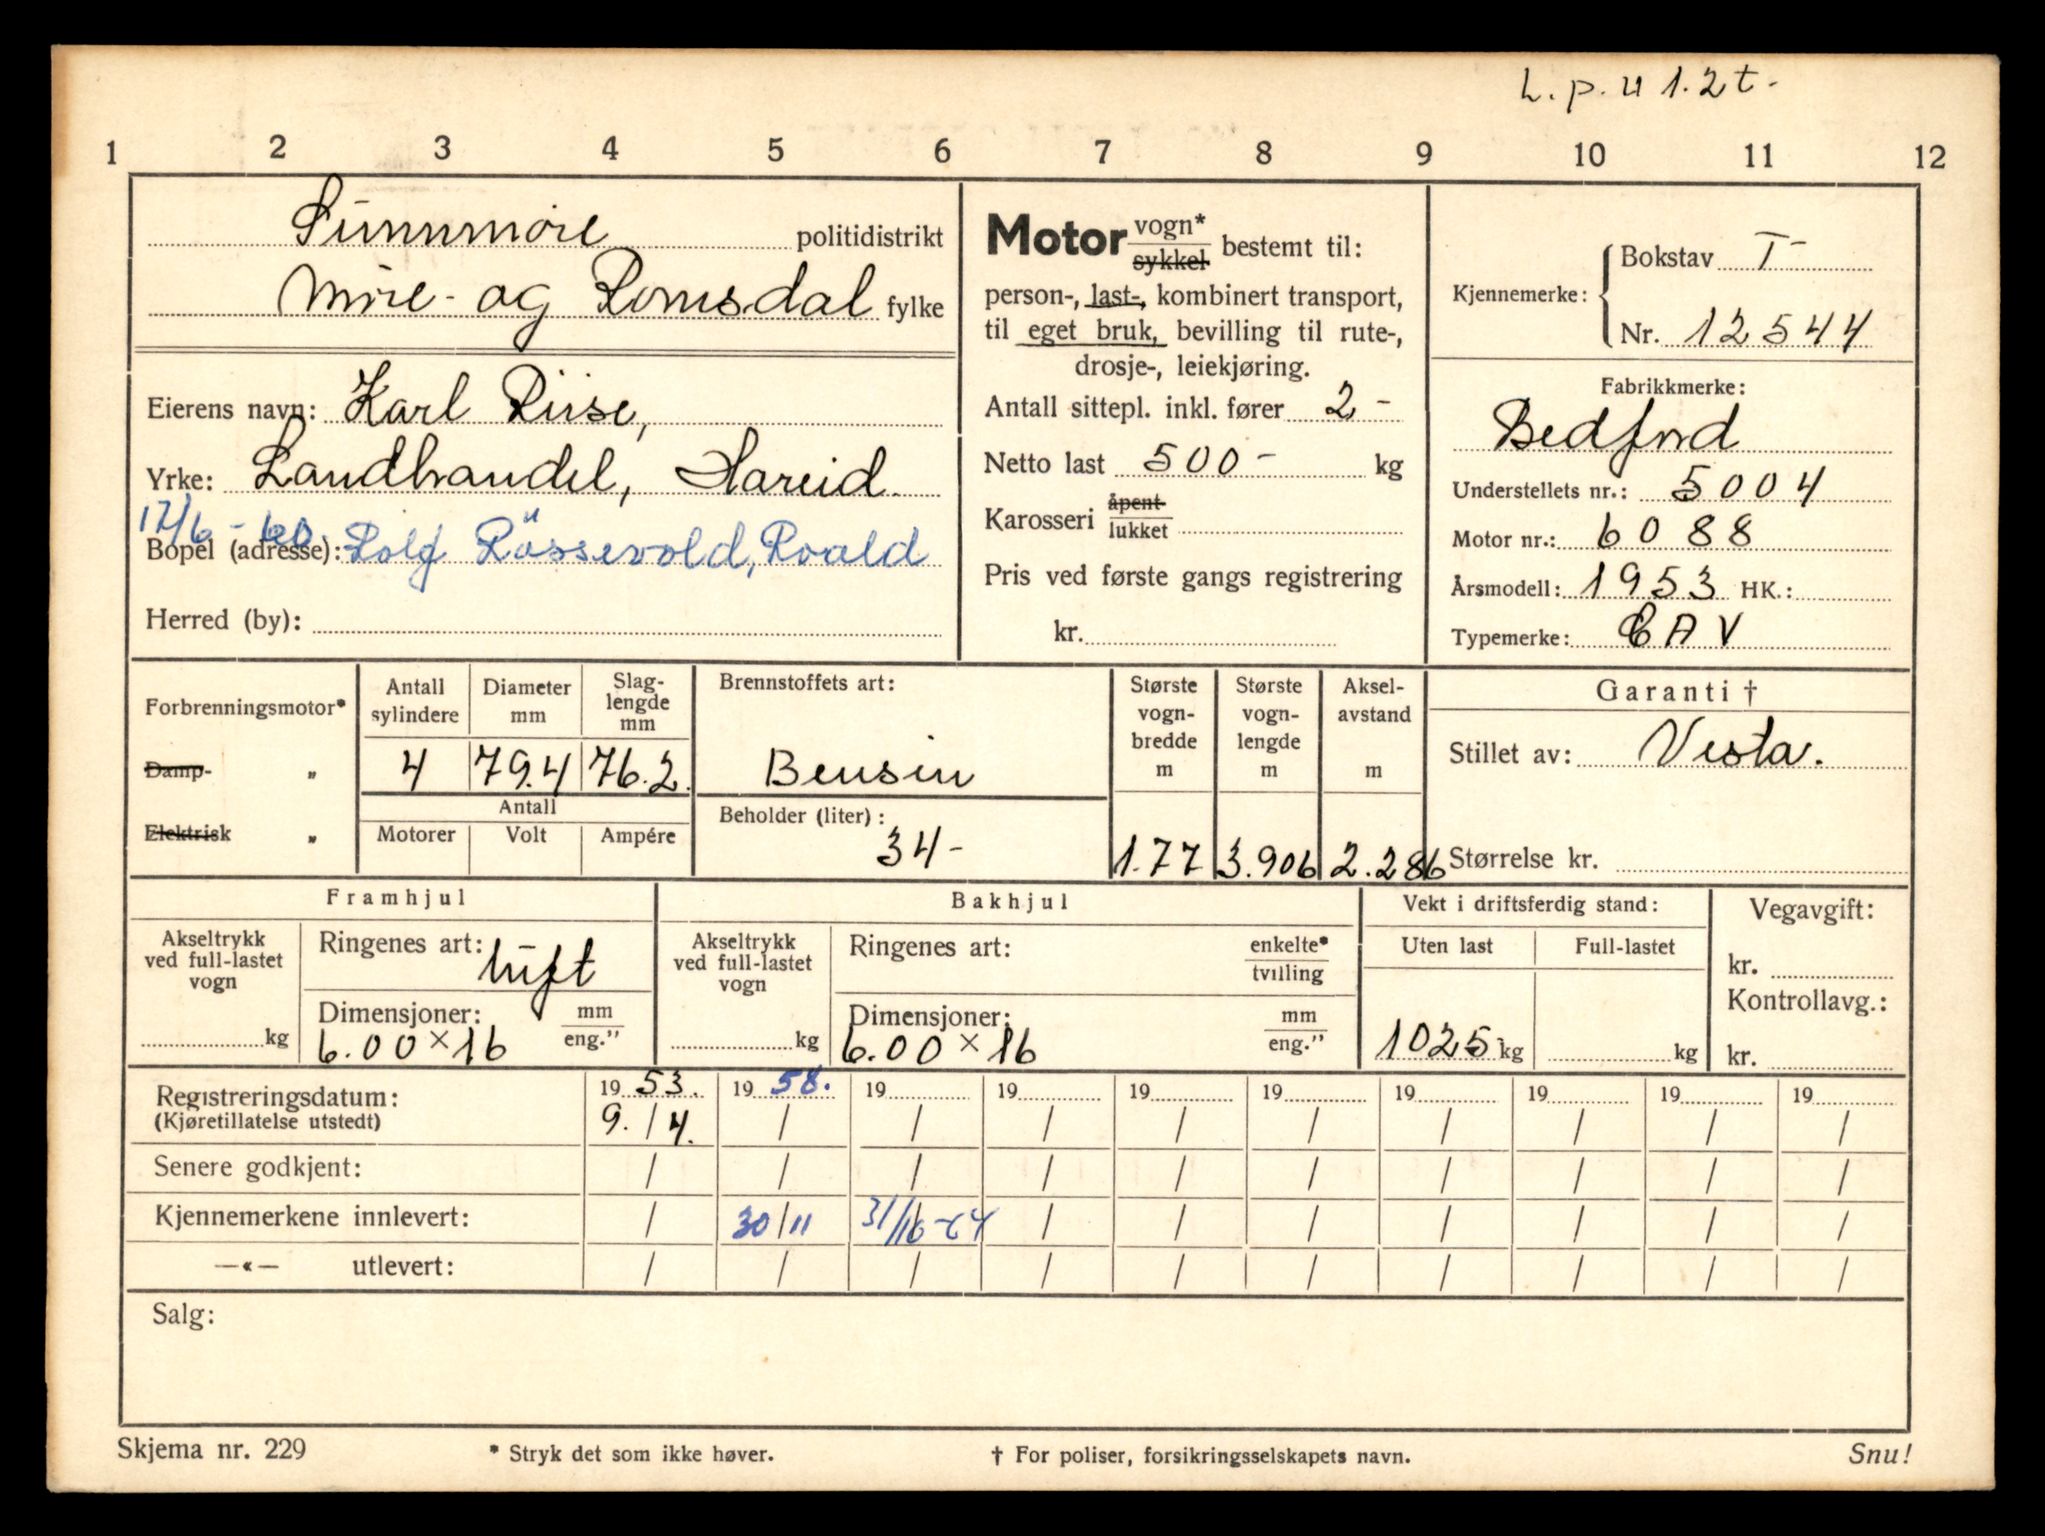 L. p. u 1.2 t-
1 2 3 4 5 6 7 8 9 10 11 12
Sunnmøre politidistrikt
Møre- og Romsdal fylke
Eierens navn: Karl Riise,
Yrke: Landhandel, Hareid.
17/6 - 60. Rolf Røssevold, Roald
Bopel (adresse):
Herred (by):
Motor vogn* / sykkel bestemt til:
person-, last-, kombinert transport,
til eget bruk, bevilling til rute-,
drosje-, leiekjøring.
Antall sittepl. inkl. fører 2 -
Netto last 500 - kg
Karosseri åpent / lukket
Pris ved første gangs registrering
kr.
Kjennemerke: Bokstav T-
Nr. 12544
Fabrikkmerke:
Bedford
Understellets nr.: 5004
Motor nr.: 6088
Årsmodell: 1953 HK.:
Typemerke: EAV
Forbrenningsmotor*
Damp- "
Elektrisk "
Antall sylindere
4
Diameter mm
79.4
Slag-lengde mm
76.2
Antall
Motorer Volt Ampére
Brennstoffets art:
Bensin
Beholder (liter):
34-
Største vogn-bredde m
1.77
Største vogn-lengde m
3.906
Aksel-avstand m
2.286
Garanti †
Stillet av: Vesta.
Størrelse kr.
Framhjul
Akseltrykk ved full-lastet vogn
kg
Ringenes art: luft
Dimensjoner: mm / eng."
6.00 × 16
Bakhjul
Akseltrykk ved full-lastet vogn
kg
Ringenes art: enkelte* / tvilling
Dimensjoner: mm / eng."
6.00 × 16
Vekt i driftsferdig stand:
Uten last Full-lastet
1025 kg kg
Vegavgift:
kr.
Kontrollavg.:
kr.
Registreringsdatum: 1953. 1958. 19 19 19 19 19 19 19 19
(Kjøretillatelse utstedt) 9. / 4. / / / / / / / / /
Senere godkjent: / / / / / / / / / /
Kjennemerkene innlevert: / 30/11 31/10-64 / / / / / / /
—«— utlevert: / / / / / / / / / /
Salg:
Skjema nr. 229 * Stryk det som ikke høver. † For poliser, forsikringsselskapets navn. Snu!